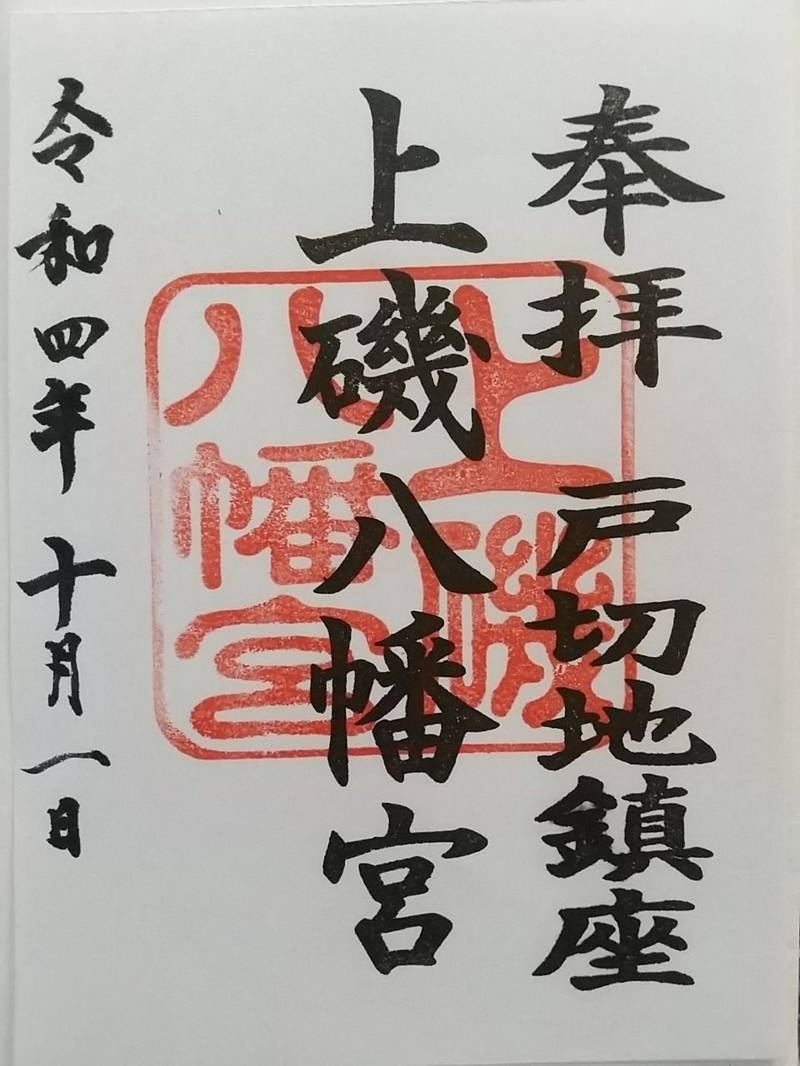 奉拝 戸切地鎮座
上磯八幡宮
令和四年十月一日
上磯
八幡宮